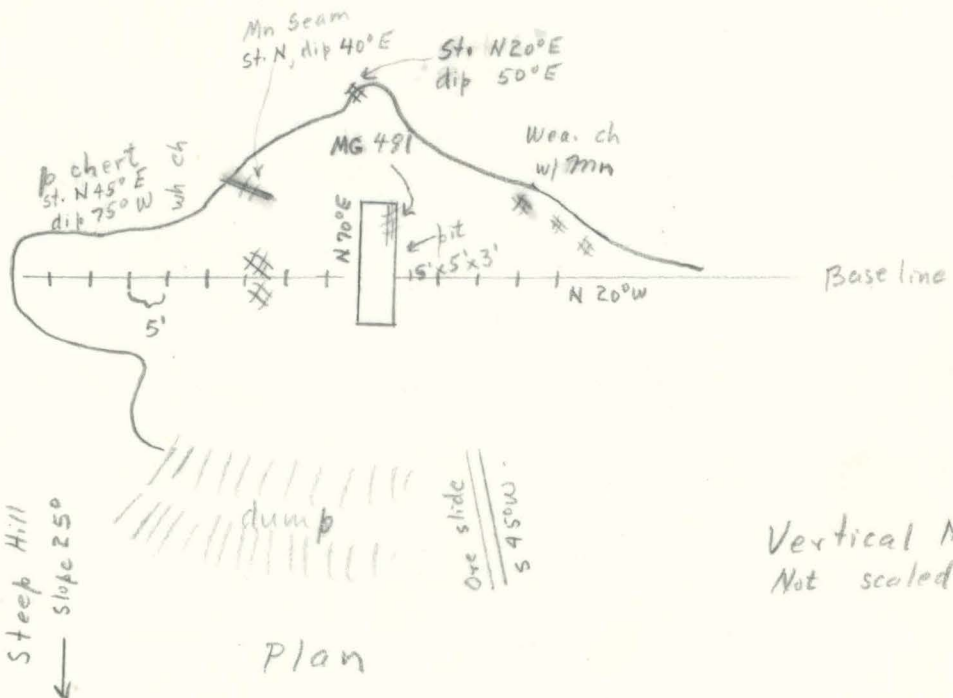 Mn seam
st. N, dip 40° E
St. N 20° E
dip 50° E
MG 481
Wea. ch
w/ mn
p chert
st. N 45° E
dip 75° W
wh ch
N 70° E
pit
15' x 5' x 3'
5'
N 20° W
Base line
dump
Ore slide
S 45° W.
Steep Hill
Slope 25°
Vertical
Not scaled
Plan